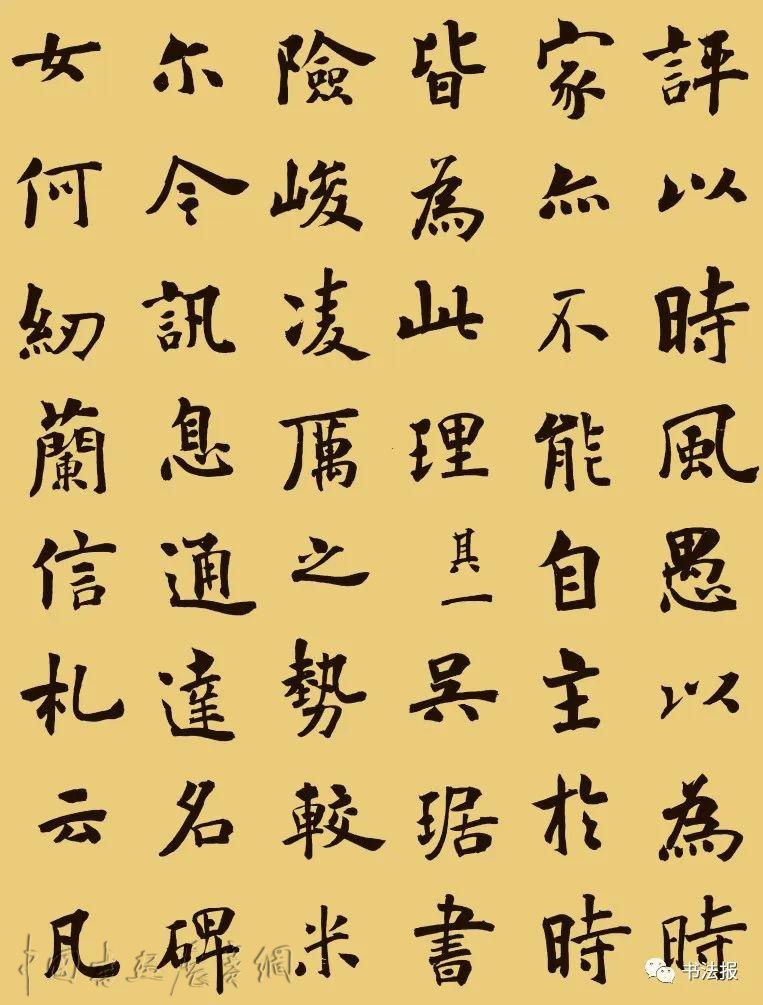 評以時風愚以為時
家亦不能自主於時
皆為此理其一吳琚書
險峻凌厲之勢較米
尓令訊息通達名碑
女何紉蘭信札云凡
中国书法展赛網
书法报